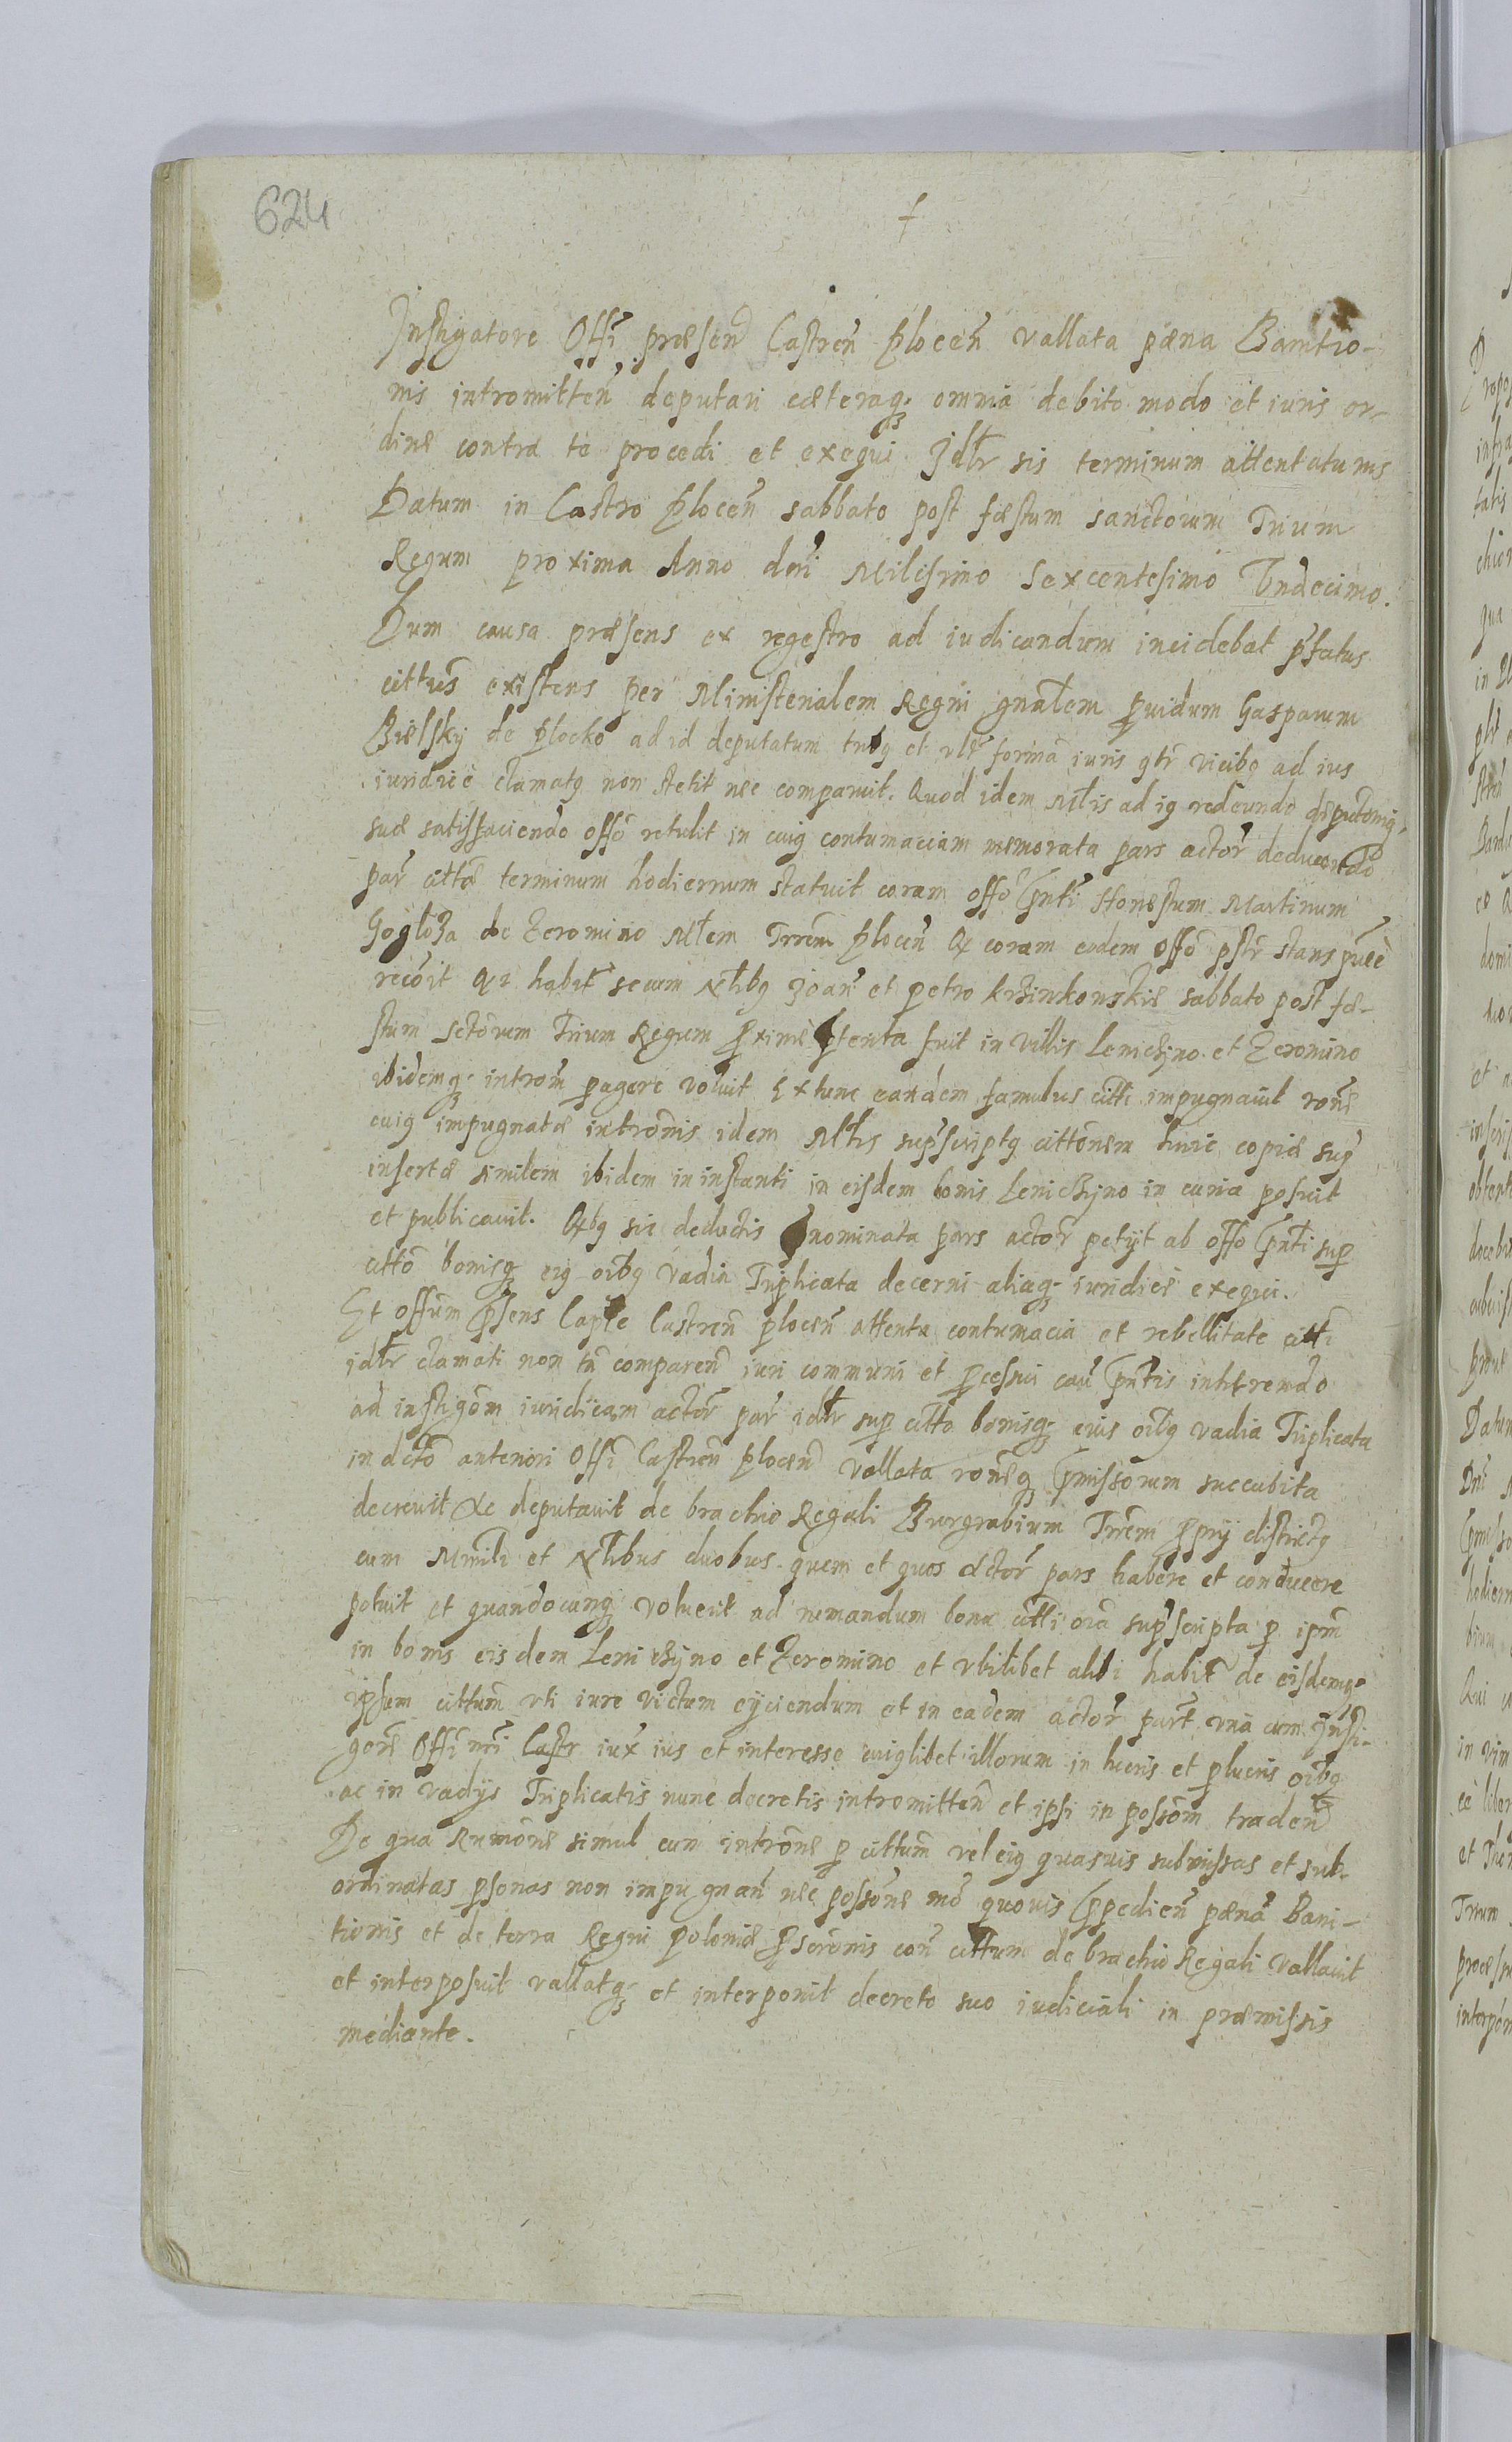 624
Instigatore Offi præsen Castren Plocen vallata pæna Banitio-
nis intromitten deputari cæteraq; omnia debito modo et iuris or-
dine contra te procedi et exequi Idtr sis terminum attentatums
Datum in Castro Plocen sabbato post fæstum sanctorum Trium
Regum proxima Anno dni Milesimo sexcentesimo Undecimo.
Dum causa præsens ex regestro ad iudicandum incidebat pfatus
cittus existens per Ministerialem Regni gnalem puidum Gasparum
Bielsky de Plocko ad id deputatum trib9 et vltr forma iuris qtr vicib9 ad ius
iuridice clamat9 non stetit nec comparuit. Quod idem Mlis ad i9 redeundo deputonig
suæ satisfaciendo offo retulit in cui9 contumaciam memorata pars actor deducendo
par citta terminum hodiernum statuit coram offo pnti Honestum Martinum
Gogloza de Zeromino Mlem Trrem Plocen Q coram eodem offo pstr stans puce
recoit Qz habit secum Nlib9 Joan et Petro Krzinkonskie sabbato post fæ-
stum sctorum Trium Regum pxime pterita fuit in villis Lenichyno et Zeromino
ibidemq; introm pagere voluit Extunc eandem famulus citti impugnauit rone
cui9 impugnatæ intromis idem Mlis supscript9 cittonem huic copiæ sup
insertæ similem ibidem in instanti in eisdem bonis Lenichyno in curia posuit
et publicauit. Qib9 sic deductis pnominata pars actor petyt ab offo pnti sup
citto bonisq; ei9 oib9 vadia Triplicata decerni aliaq; iuridice exequi.
Et offum psens Captle Castren Plocen attenta contumacia et rebellitate citti
idtr clamati non tn comparen iuri communi et pcessui cau pntis inhærendo
ad instigom iuridicam actor par idtr sup citto bonisq; eius oib9 vadia Triplicata
in dcto anteriori Offi Castren Plocen vallata roneq; pmissorum succubita
decreuit Ac deputauit de brachio Regali Burgrabium Trrem ppry district9
cum Mmili et Nlibus duobus quem et quos actor pars habere et conducere
potuit et quandocunq; voluerit ad rumandum bona citti oia supscripta p ipm
in bonis eisdem Lenichyno et Zeromino et vbilibet alibi habit de eisdemq;
ipsum cittum vti iure victum eyciendum et in eadem actor part vna cum Insti-
gore Offi nri Castr iux ius et interesse cui9libet illorum in lucris et plucris oib9
ac in vadys Triplicatis nunc decretis intromitten et ipsi in possom traden
De qua Rumone simul cum introne p cittum vel ei9 quasuis submissas et sub-
ordinatas psonas non impugnan nec possone mo quouis ppedien pæna Bani-
tionis et de terra Regni Poloniæ pscronis con cittum de brachio Regali vallauit
et interposuit vallatq; et interponit decreto suo iudiciali in præmissis
mediante.